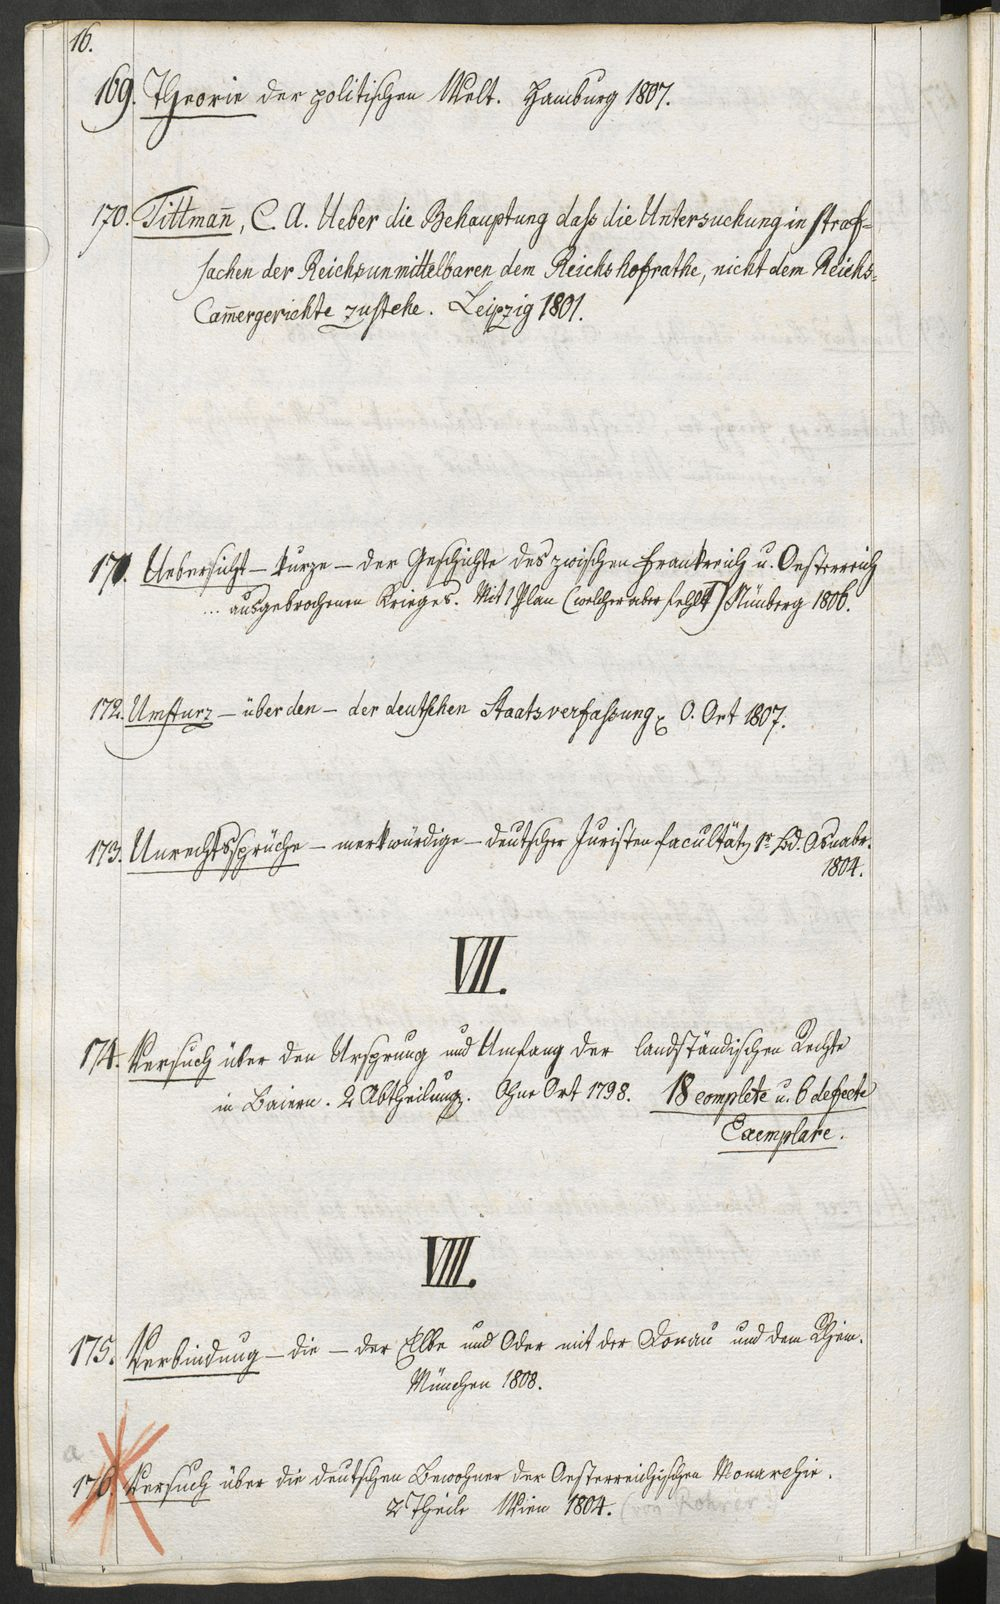 16.
169. Theorie der politischen Welt. Hamburg 1807.
170. Tittman̄, C. A. Ueber die Behauptung daß die Untersuchung in Straf-
sachen der Reichsunmittelbaren dem Reichshofrathe, nicht dem Reichs-
Cam̄ergerichte zustehe. Leipzig 1801.
171. Uebersicht – kurze – der Geschichte des zwischen Frankreich u. Oesterreich
... ausgebrochenen Krieges. Mit 1 Plan (welcher aber fehlt) Nürnberg 1806.
172. Umsturz – über den – der deutschen Staatsverfaßung O. Ort 1807.
173. Unrechtssprüche – merkwürdige – deutscher Juristenfacultätn 1r Bd. Osnabr.
1804.
VII.
174. Versuch über den Ursprung und Umfang der landständischen Rechte
in Baiern. 2 Abtheilung. Ohne Ort 1798. 18 complete u. 6 defecte
Exemplare.
VIII.
175. Verbindung – die – der Elbe und Oder mit der Donau und dem Rhein.
München 1808.
a
176. Versuch über die deutschen Bewohner der Oesterreichischen Monarchie.
2 Theile Wien 1804. (von Rohrer)